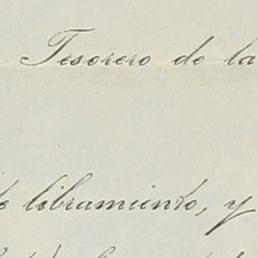 Tesorero de la
libramiento, y